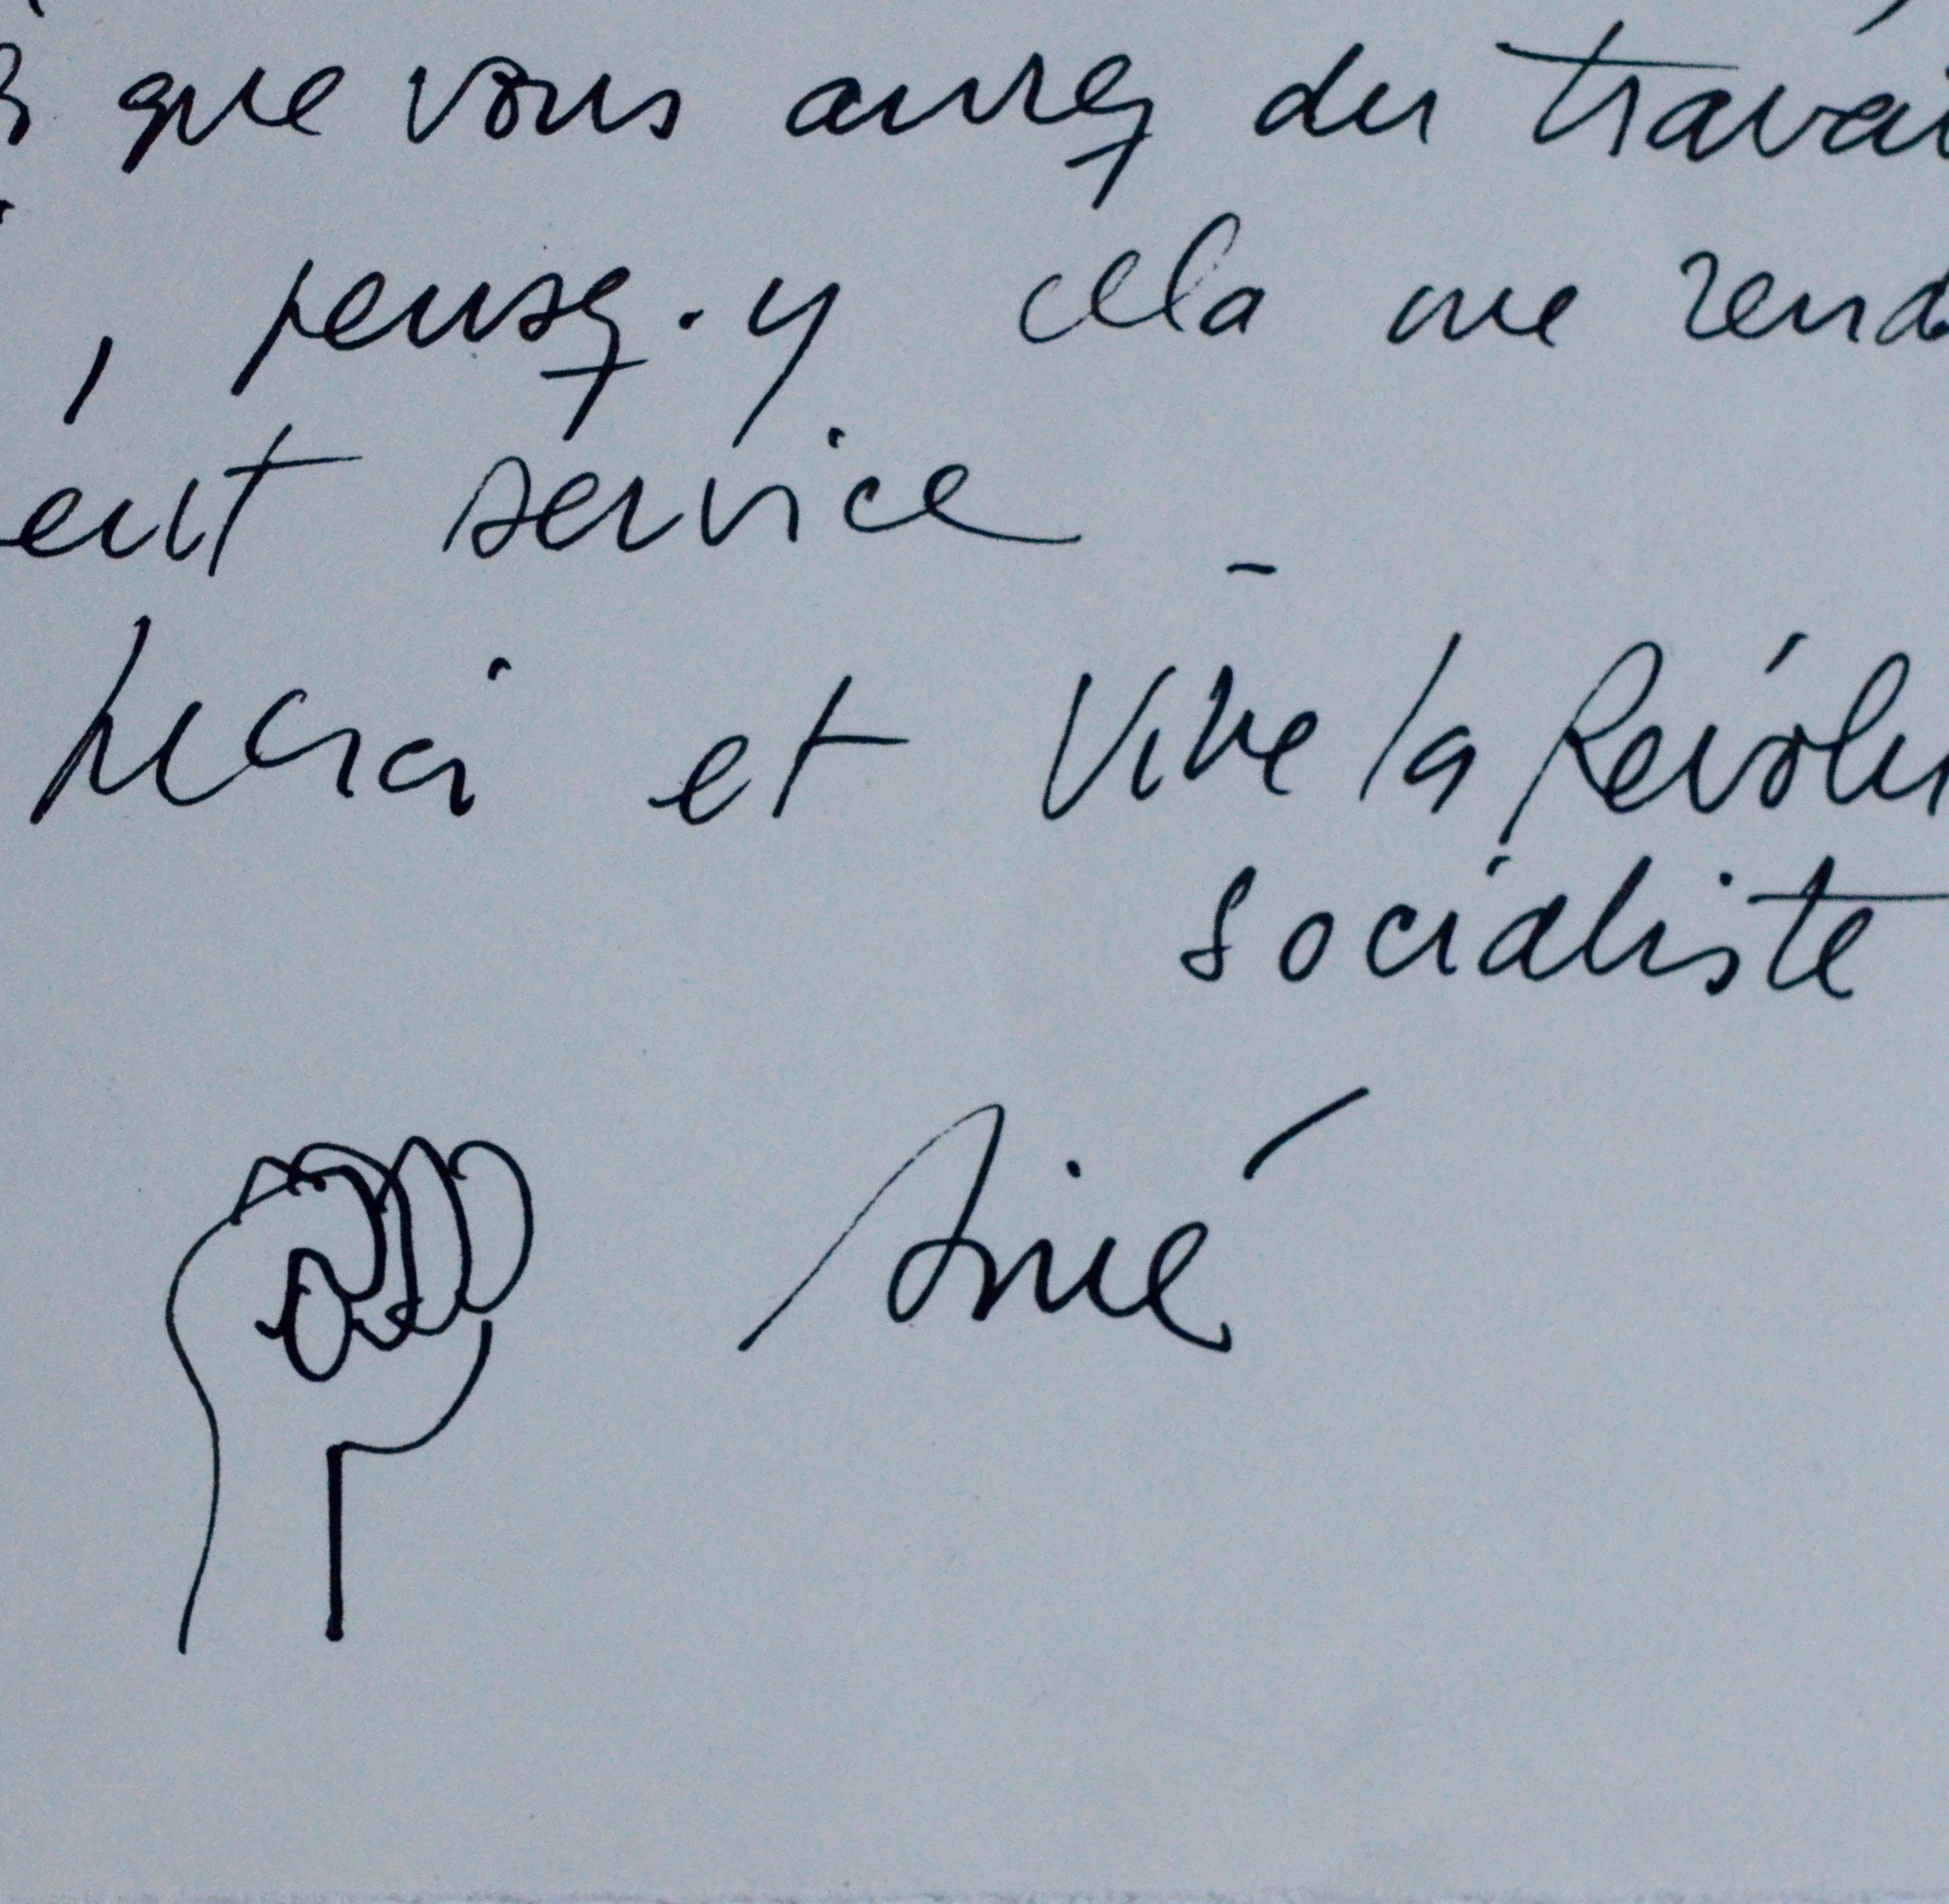 que vous aurez du travai
, pensez-y cela me rend
ent service -
Merci et Vive la Révolu
socialiste
Siné